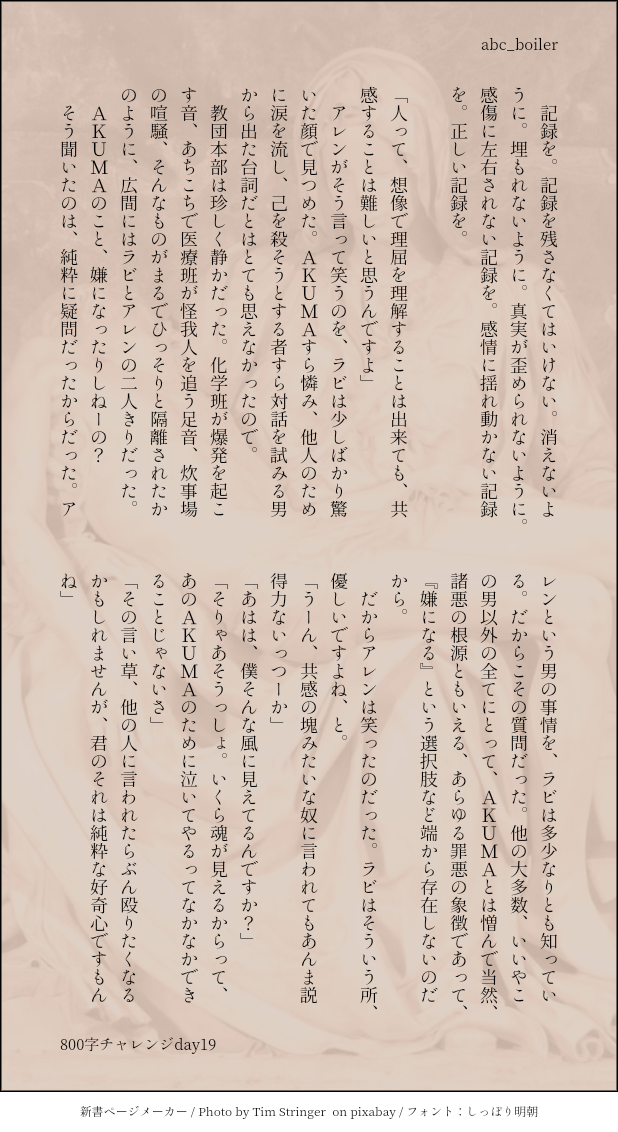 abc_boiler
　記録を。記録を残さなくてはいけない。消えないよ
うに。埋もれないように。真実が歪められないように。
感傷に左右されない記録を。感情に揺れ動かない記録
を。正しい記録を。
「人って、想像で理屈を理解することは出来ても、共
感することは難しいと思うんですよ」
　アレンがそう言って笑うのを、ラビは少しばかり驚
いた顔で見つめた。ＡＫＵＭＡすら憐み、他人のため
に涙を流し、己を殺そうとする者すら対話を試みる男
から出た台詞だとはとても思えなかったので。
　教団本部は珍しく静かだった。化学班が爆発を起こ
す音、あちこちで医療班が怪我人を追う足音、炊事場
の喧騒、そんなものがまるでひっそりと隔離されたか
のように、広間にはラビとアレンの二人きりだった。
　ＡＫＵＭＡのこと、嫌になったりしねーの？
　そう聞いたのは、純粋に疑問だったからだった。ア
レンという男の事情を、ラビは多少なりとも知ってい
る。だからこその質問だった。他の大多数、いいやこ
の男以外の全てにとって、ＡＫＵＭＡとは憎んで当然、
諸悪の根源ともいえる、あらゆる罪悪の象徴であって、
『嫌になる』という選択肢など端から存在しないのだ
から。
　だからアレンは笑ったのだった。ラビはそういう所、
優しいですよね、と。
「うーん、共感の塊みたいな奴に言われてもあんま説
得力ないっつーか」
「あはは、僕そんな風に見えてるんですか？」
「そりゃあそうっしょ。いくら魂が見えるからって、
あのＡＫＵＭＡのために泣いてやるってなかなかでき
ることじゃないさ」
「その言い草、他の人に言われたらぶん殴りたくなる
かもしれませんが、君のそれは純粋な好奇心ですもん
ね」
800字チャレンジday19
新書ページメーカー / Photo by Tim Stringer on pixabay / フォント：しっぽり明朝